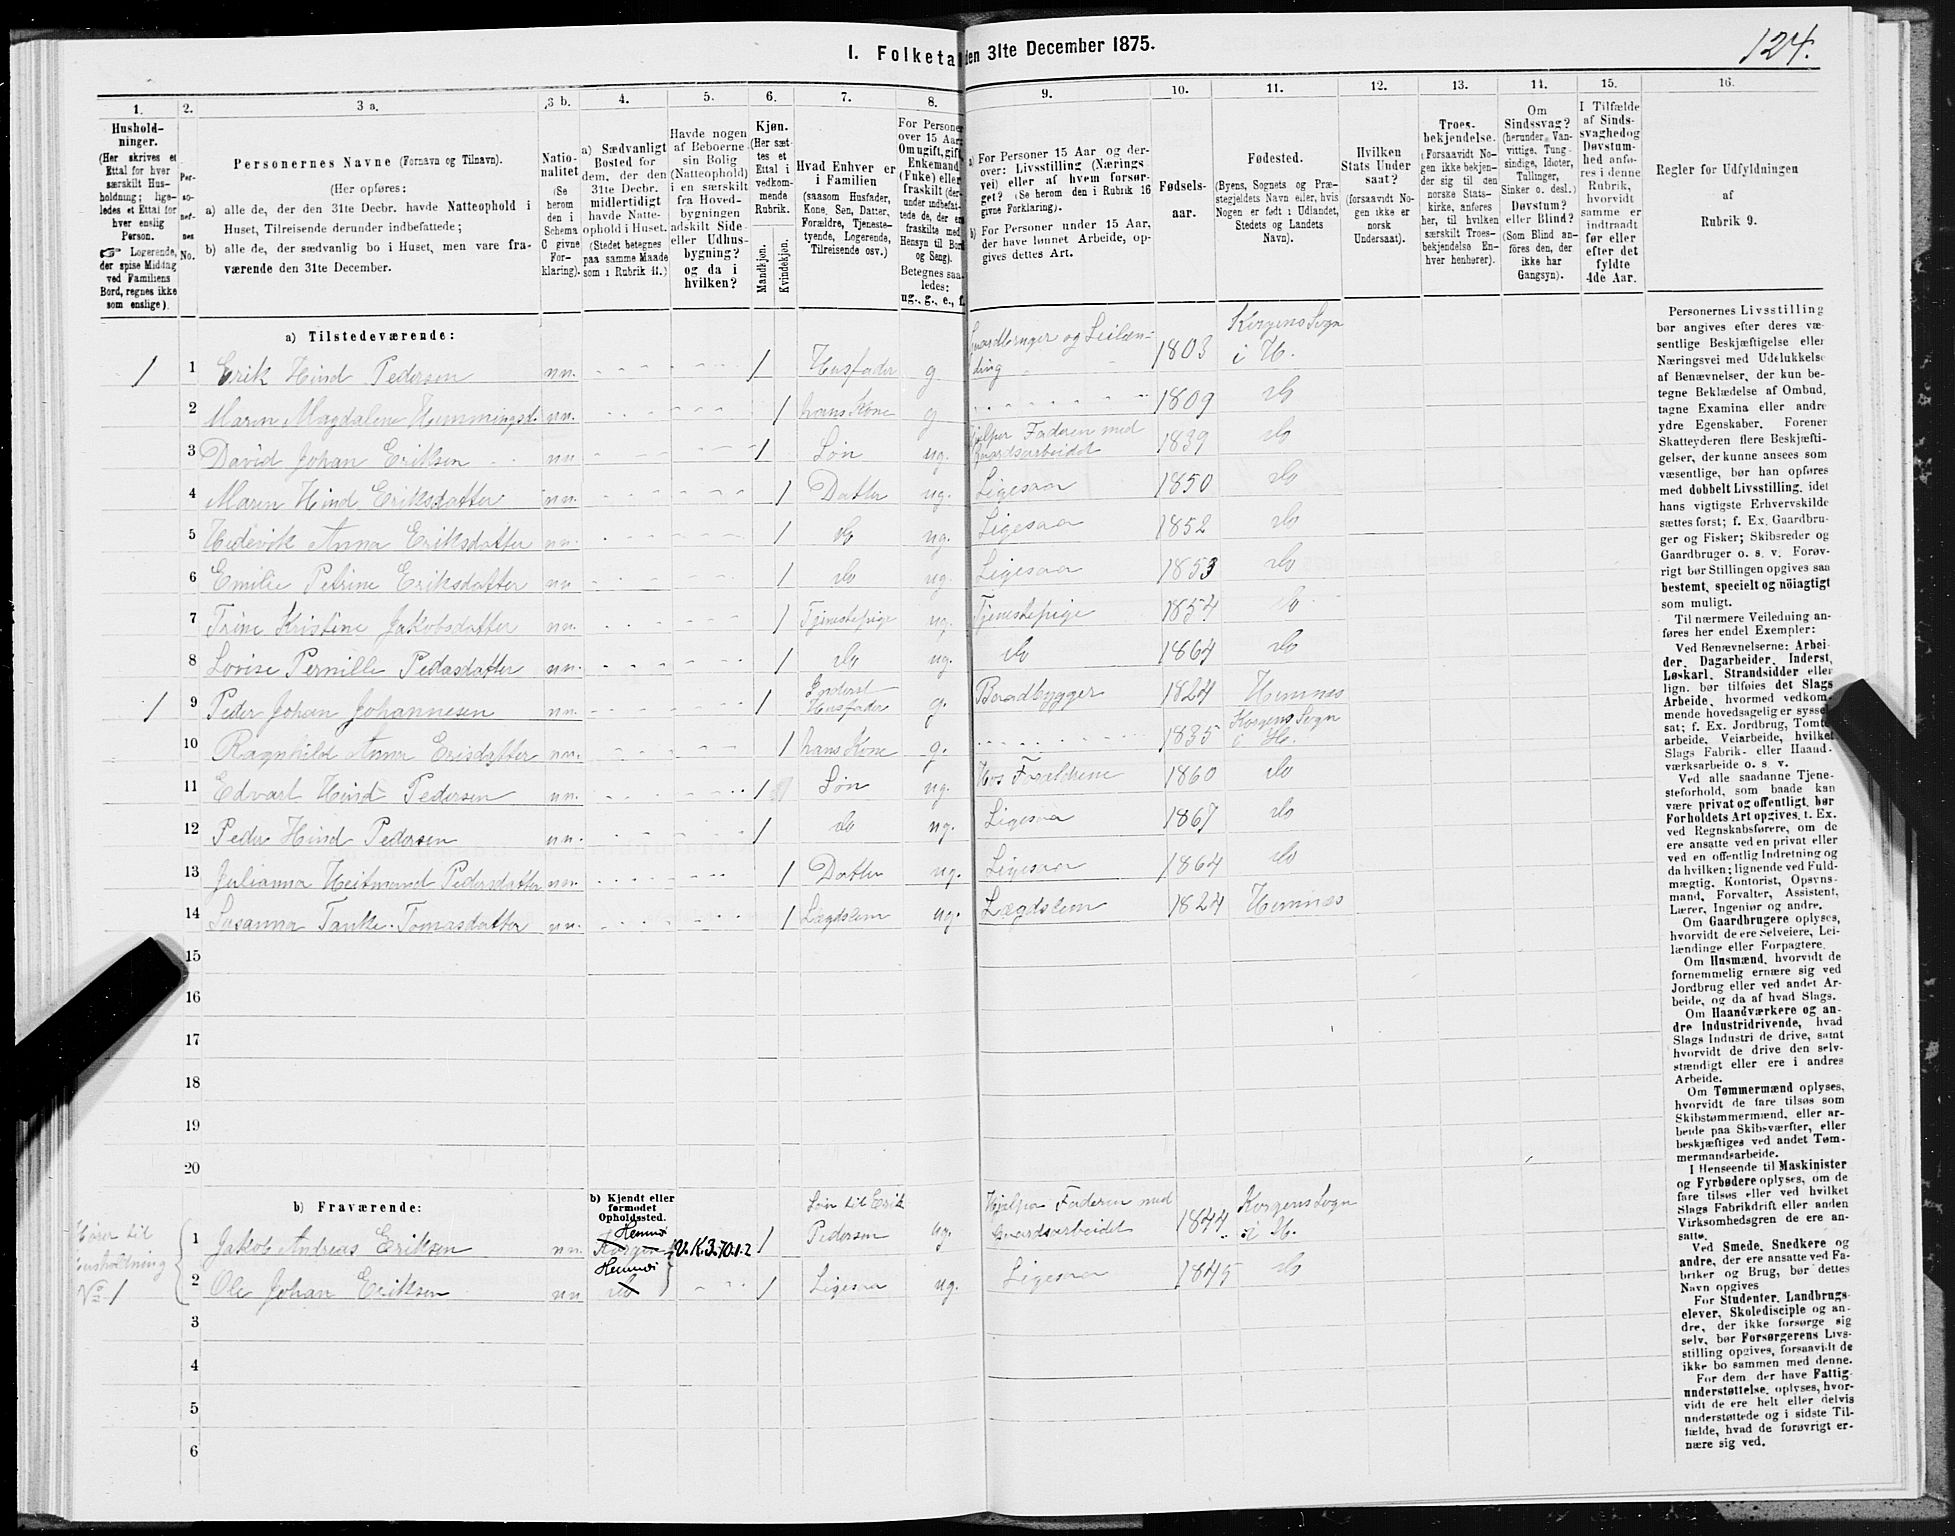 I. Folketal den 31te December 1875.
124.
1. 2. 3 a. 3 b. 4. 5. 6. 7. 8. 9. 10. 11. 12. 13. 14. 15. 16.
Hushold-
ninger.
(Her skrives et
Ettal for hver
særskilt Hus-
holdning; lige-
ledes et Ettal for
hver enslig
Person.
☞ Logerende,
der spise Middag
ved Familiens
Bord, regnes ikke
som enslige).
Per-
so-
ner-
nes
No.
Personernes Navne (Fornavn og Tilnavn).
(Her opføres:
a) alle de, der den 31te Decbr. havde Natteophold i
Huset, Tilreisende derunder indbefattede;
b) alle de, der sædvanlig bo i Huset, men vare fra-
værende den 31te December.
Natio-
nalitet
(Se
herom
den i
Schema
C givne
For-
klaring).
a) Sædvanligt
Bosted for
dem, der den
31te Decbr.
midlertidigt
havde Natte-
ophold i Huset.
(Stedet betegnes
paa samme Maade
som i Rubrik 11.)
Havde nogen
af Beboerne
sin Bolig
(Natteophold)
i en særskilt
fra Hoved-
bygningen
adskilt Side-
eller Udhus-
bygning?
og da i
hvilken?
Kjøn.
(Her sæt-
tes et
Ettal i
vedkom-
mende
Rubrik.
Mandkjøn.
Kvindekjøn.
Hvad Enhver er
i Familien
(saasom Husfader,
Kone, Søn, Datter,
Forældre, Tjeneste-
tyende, Logerende,
Tilreisende osv.)
For Personer
over 15 Aar:
Om ugift, gift,
Enkemand
(Enke) eller
fraskilt (der-
under indbefat-
tede de, der ere
fraskilte med
Hensyn til Bord
og Seng).
Betegnes saa-
ledes:
ug., g., e., f.
a) For Personer 15 Aar og der-
over: Livsstilling (Nærings-
vei) eller af hvem forsør-
get? (Se herom den i Rubrik 16
givne Forklaring).
b) For Personer under 15 Aar,
der have lønnet Arbeide, op-
gives dettes Art.
Fødsels-
aar.
Fødested.
(Byens, Sognets og Præ-
stegjeldets Navn eller, hvis
Nogen er født i Udlandet,
Stedets og Landets
Navn).
Hvilken
Stats Under
saat?
(forsaavidt No-
gen ikke er
norsk
Undersaat).
Troes-
bekjendelse.
(Forsaavidt No-
gen ikke bekjen-
der sig til den
norske Stats-
kirke, anføres
her, til hvilken
særskilt Troes-
bekjendelse En-
hver henhører).
Om
Sindssvag?
(herunder Van-
vittige, Tung-
sindige, Idioter,
Tullinger,
Sinker o. desl.)
Døvstum?
eller Blind?
(Som Blind an-
føres den, der
ikke har
Gangsyn).
I Tilfælde
af Sinds-
svaghed og
Døvstum-
hed anfø-
res i denne
Rubrik,
hvorvidt
samme er
indtraadt
før eller
efter det
fyldte
4de Aar.
Regler for Udfyldningen
af
Rubrik 9.
a) Tilstedeværende:
1 1 Erik Hind Pedersen nn. 1 Husfader g Gaardbruger og Leilæn-
ding 1803 Korgens Sogn
i H.
2 Maren Magdalena Hemmingsd. nn. 1 hans Kone g 1809 do
3 David Johan Eriksen nn 1 Søn ug. Hjelper Faderen med
Gaardsarbeidet 1839 do
4 Maren Hind Eriksdatter nn. 1 Datter ug. Ligesaa 1850 do
5 Hedevik Anna Eriksdatter nn. 1 do ug. Ligesaa 1852 do
6 Emilie Petrine Eriksdatter nn 1 do ug. Ligesaa 1853 do
7 Trine Kristine Jakobsdatter nn. 1 Tjenestepige ug. Tjenestepige 1854 do
8 Lovise Pernille Pedersdatter nn. 1 do ug. do 1864 do
1 9 Peder Johan Johannesen nn. 1 Inderst
Husfader g. Baadbygger 1824 Hemnæs
10 Ragnhild Anna Erisdatter nn. 1 hans Kone g. 1835 Korgens Sogn
i He.
11 Edvart Hind Pedersen nn. 1 Søn ug. Hos Forældrene 1860 do
12 Peder Hind Pedersen nn. 1 do ug. Ligesaa 1867 do
13 Julianna Heitmand Pedersdatter nn. 1 Datter ug. Ligesaa 1864 do
14 Susanna Tanke Tomasdatter nn. 1 Lægdslem ug. Lægdslem 1824 Hemnæs
15
16
17
18
19
20
b) Fraværende:
b) Kjendt eller
formodet
Opholdssted.
Hører til
Husholdning
No. 1
1 Jakob Andreas Eriksen nn. Korgen Hemnæ V.K.3.70.1.2 1 Søn til Erik
Pedersen ug. Hjelper Faderen med
Gaardsarbeidet 1844 Korgens Sogn
i H.
2 Ole Johan Eriksen nn do 1 Ligesaa ug. Ligesaa 1845 do
3
4
5
6
Personernes Livsstilling
bør angives efter deres væ-
sentlige Beskjæftigelse eller
Næringsvei med Udelukkelse
af Benævnelser, der kun be-
tegne Beklædelse af Ombud,
tagne Examina eller andre
ydre Egenskaber. Forener
Skatteyderen flere Beskjæfti-
gelser, der kunne ansees som
væsentlige, bør han opføres
med dobbelt Livsstilling, idet
hans vigtigste Erhvervskilde
sættes først; f. Ex. Gaardbru-
ger og Fisker; Skibsreder og
Gaardbruger o. s. v. Forøv-
rigt bør Stillingen opgives saa
bestemt, specielt og nöiagtigt
som muligt.
Til nærmere Veiledning an-
føres her endel Exempler:
Ved Benævnelserne: Arbei-
der, Dagarbeider, Inderst,
Løskarl, Strandsidder eller
lign. bør tilføies det Slags
Arbeide, hvormed vedkom-
mende hovedsagelig er syssel-
sat; f. Ex. Jordbrug, Tomte-
arbeide, Veiarbeide, hvilket
Slags Fabrik- eller Haand-
værksarbeide o. s. v.
Ved alle saadanne Tjene-
steforhold, som baade kan
være privat og offentligt, bør
Forholdets Art opgives, t. Ex.
ved Regnskabsførere, om de
ere ansatte ved en privat eller
ved en offentlig Indretning og
da hvilken; lignende ved Fuld-
mægtig, Kontorist, Opsyns-
mand, Forvalter, Assistent,
Lærer, Ingeniør og andre.
Om Gaardbrugere oplyses,
hvorvidt de ere Selveiere, Lei-
lændinge eller Forpagtere.
Om Husmænd, hvorvidt de
fornemmelig ernære sig ved
Jordbrug eller ved andet Ar-
beide, og da af hvad Slags.
Om Haandværkere og an-
dre Industridrivende, hvad
Slags Industri de drive, samt
hvorvidt de drive den selv-
stændigt eller ere i andres
Arbeide.
Om Tømmermænd oplyses,
hvorvidt de fare tilsøs som
Skibstømmermænd, eller ar-
beide paa Skibsværfter, eller
beskjæftiges ved andet Tøm-
mermandsarbeide.
I Henseende til Maskinister
og Fyrbødere oplyses, om de
fare tilsøs eller ved hvilket
Slags Fabrikdrift eller anden
Virksomhedsgren de ere an-
satte.
Ved Smede, Snedkere og
andre, der ere ansatte ved Fa-
briker og Brug, bør dettes
Navn opgives
For Studenter, Landbrugs-
elever, Skoledisciple og an-
dre, der ikke forsørge sig
selv, bør Forsørgerens Livs-
stilling opgives, forsaavidt de
ikke bo sammen med denne.
For dem, der have Fattig-
understøttelse, oplyses, hvor-
vidt de ere helt eller delvis
understøttede og i sidste Til-
fælde, hvad de forøvrigt er-
nære sig ved.